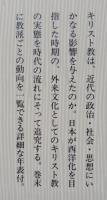 キリスト教は、近代の政治・社会・思想にい
かなる影響を与えたのか。日本が西洋化を目
指した時期の、外来文化としてのキリスト教
の実態を時代の流れにそって追究する。巻末
に教派ごとの動向を一覧できる詳細な年表付。